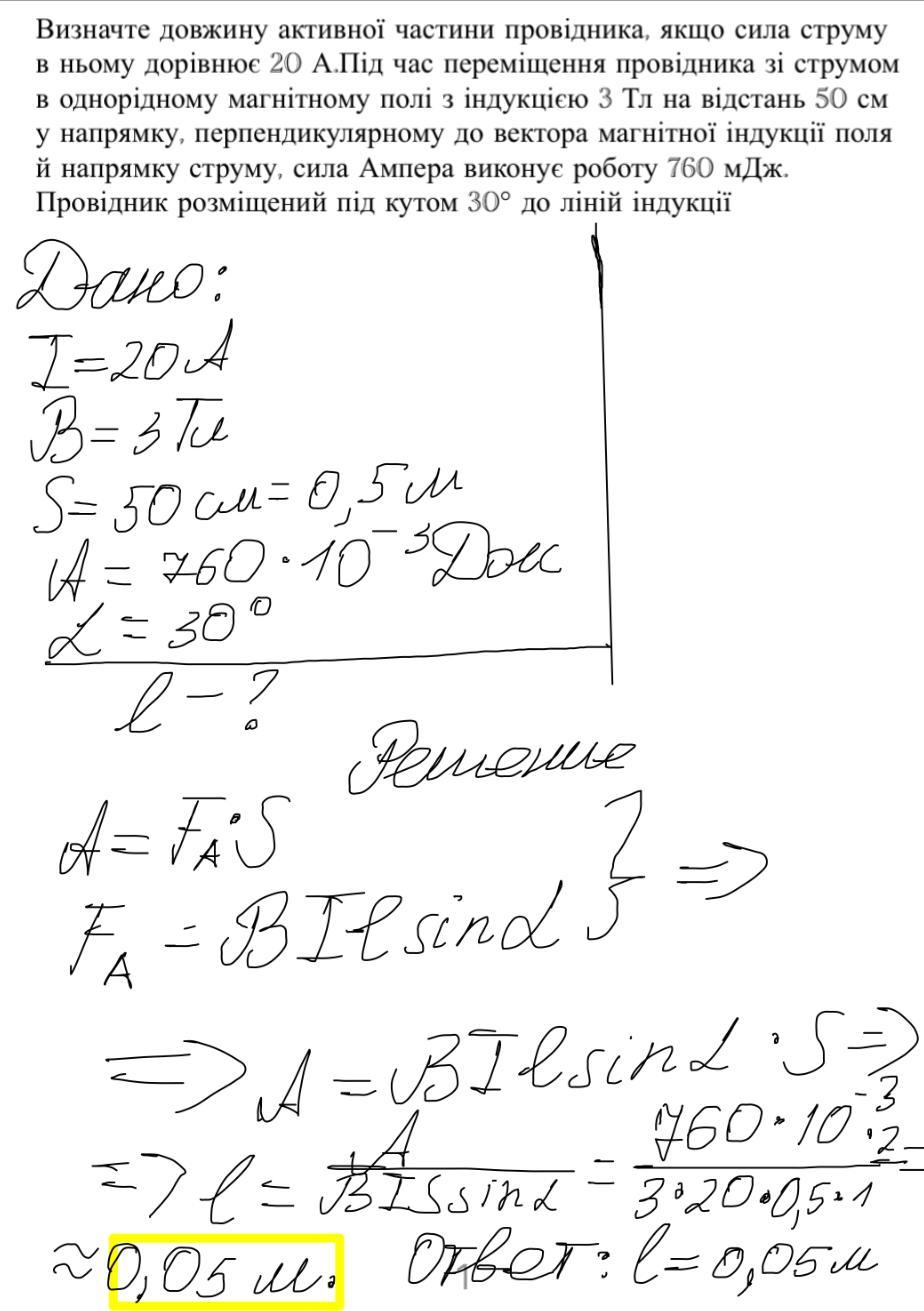 Визначте довжину активної частини провідника, якщо сила струму
в ньому дорівнює 20 А.Під час переміщення провідника зі струмом
в однорідному магнітному полі з індукцією 3 Тл на відстань 50 см
у напрямку, перпендикулярному до вектора магнітної індукції поля
й напрямку струму, сила Ампера виконує роботу 760 мДж.
Провідник розміщений під кутом 30° до ліній індукції
Дано:
I = 20 А
B = 3 Тл
S = 50 см = 0,5 м
A = 760 · 10⁻³ Дж
α = 30°
l – ?
Решение
A = F_A · S
F_A = BIl sin α } =>
=> A = BIl sin α · S =>
=> l = A / (BIS sin α) = (760 · 10⁻³ · 2) / (3 · 20 · 0,5 · 1) =
≈ 0,05 м. Ответ: l = 0,05 м